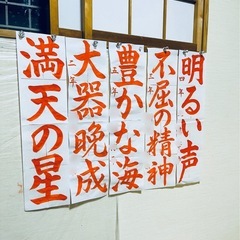 明るい声
不屈の精神
豊かな海
大器晩成
満天の星